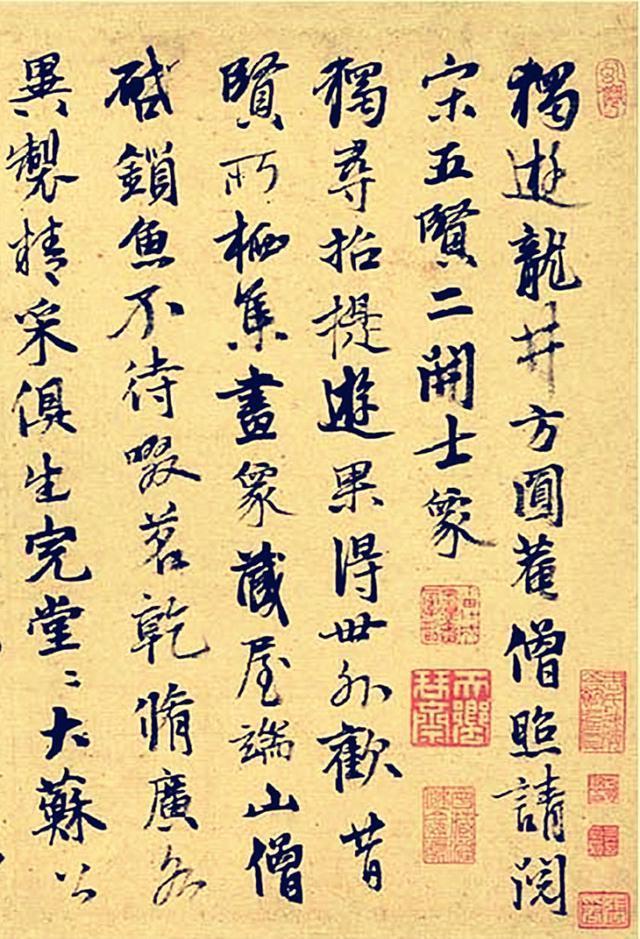 獨遊龍井方圓菴僧照請閱
宋五賢二開士象
獨尋招提遊果得世外歡昔
賢所栖集畫象藏屋端山僧
啓鎖魚不待啜茗乾脩廣各
異製精采俱生完堂〻大蘇公
天籟